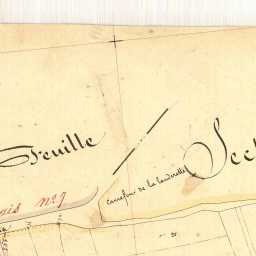 Feuille
Sect
carrefour de la landerelle
gis n° 7